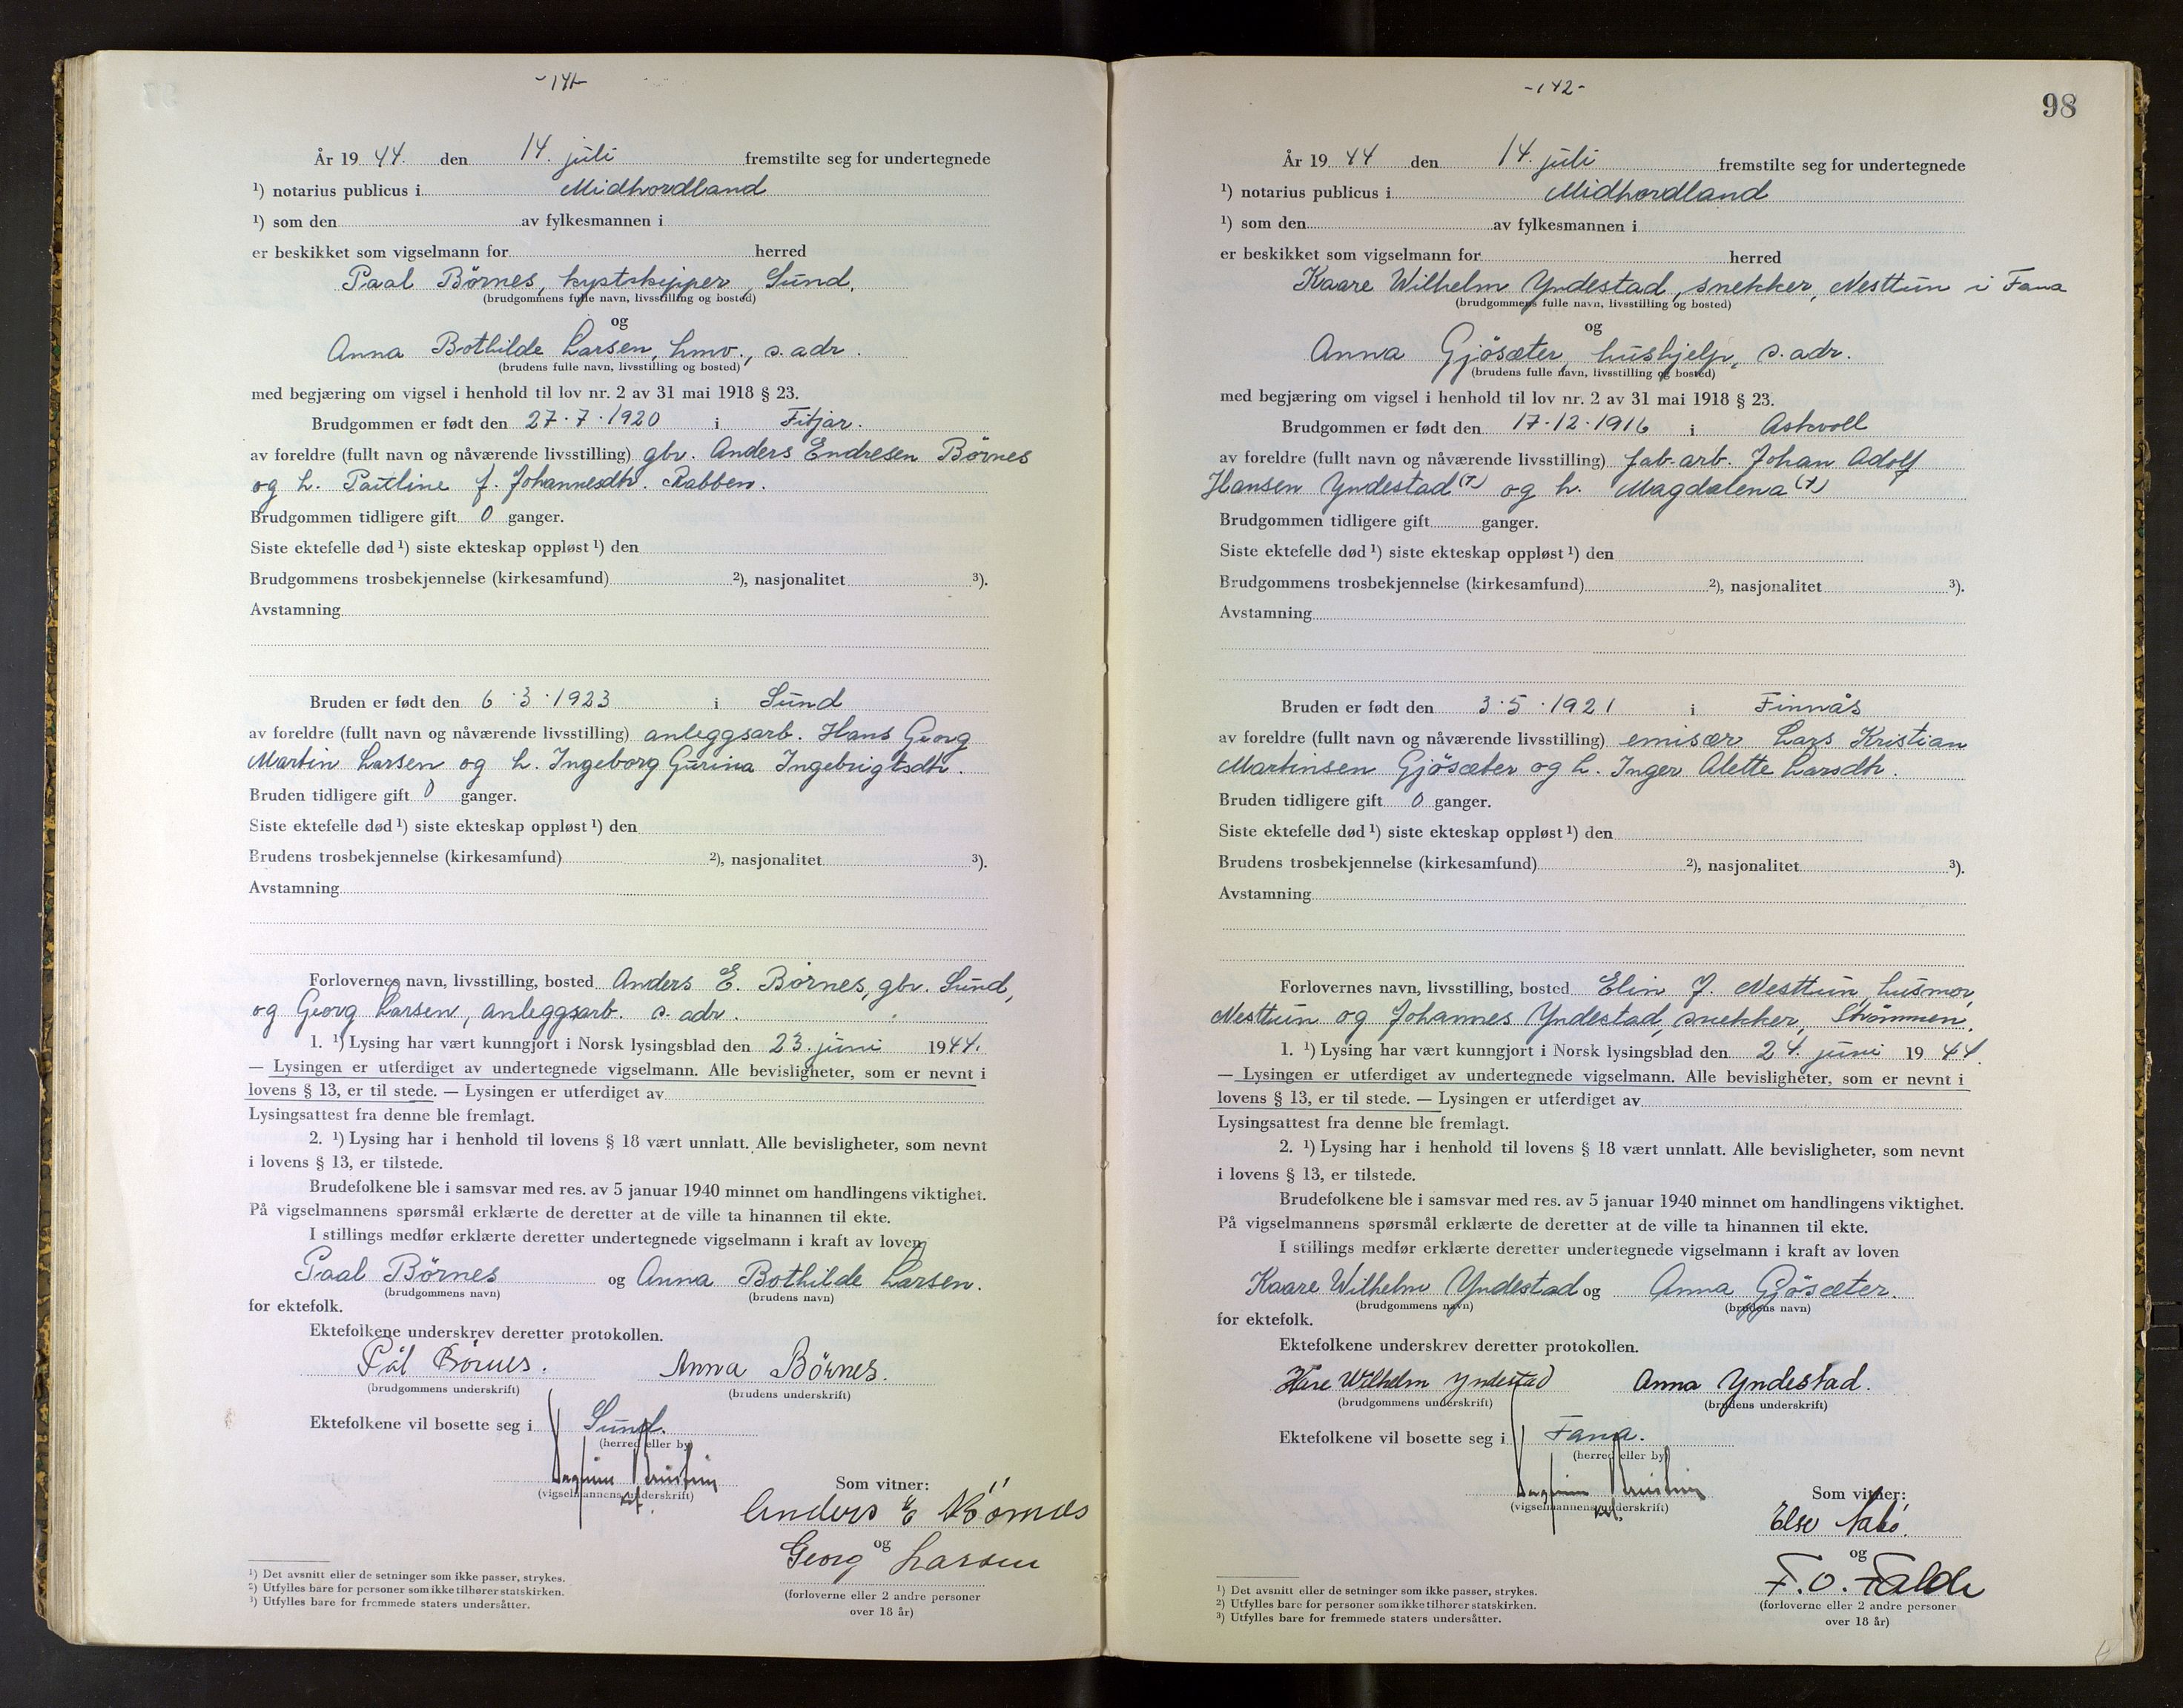 -141-
År 19 44. den 14. juli fremstilte seg for undertegnede
¹) notarius publicus i Midhordland
¹) som den av fylkesmannen i
er beskikket som vigselmann for herred
Paal Börnes, kystskipper, Sund.
(brudgommens fulle navn, livsstilling og bosted)
og
Anna Bothilde Larsen, hmv., s. adr.
(brudens fulle navn, livsstilling og bosted)
med begjæring om vigsel i henhold til lov nr. 2 av 31 mai 1918 § 23.
Brudgommen er født den 27·7·1920 i Fitjar.
av foreldre (fullt navn og nåværende livsstilling) gbr. Anders Endresen Börnes
og h. Pauline f. Johannesdtr. Rabben.
Brudgommen tidligere gift 0 ganger.
Siste ektefelle død ¹) siste ekteskap oppløst ¹) den
Brudgommens trosbekjennelse (kirkesamfund) ²), nasjonalitet ³).
Avstamning
Bruden er født den 6·3·1923 i Sund
av foreldre (fullt navn og nåværende livsstilling) anleggsarb. Hans Georg
Martin Larsen og h. Ingeborg Gurina Ingebrigtsdtr.
Bruden tidligere gift 0 ganger.
Siste ektefelle død ¹) siste ekteskap oppløst ¹) den
Brudens trosbekjennelse (kirkesamfund) ²), nasjonalitet ³).
Avstamning
Forlovernes navn, livsstilling, bosted Anders E. Börnes, gbr. Sund,
og Georg Larsen, anleggsarb. s. adr.
1. ¹) Lysing har vært kunngjort i Norsk lysingsblad den 23. juni 1944.
— Lysingen er utferdiget av undertegnede vigselmann. Alle bevisligheter, som er nevnt i
lovens § 13, er til stede. — Lysingen er utferdiget av
Lysingsattest fra denne ble fremlagt.
2. ¹) Lysing har i henhold til lovens § 18 vært unnlatt. Alle bevisligheter, som nevnt
i lovens § 13, er tilstede.
Brudefolkene ble i samsvar med res. av 5 januar 1940 minnet om handlingens viktighet.
På vigselmannens spørsmål erklærte de deretter at de ville ta hinannen til ekte.
I stillings medfør erklærte deretter undertegnede vigselmann i kraft av loven
Paal Börnes og Anna Bothilde Larsen.
(brudgommens navn) (brudens navn)
for ektefolk.
Ektefolkene underskrev deretter protokollen.
Pål Börnes. Anna Börnes.
(brudgommens underskrift) (brudens underskrift)
Ektefolkene vil bosette seg i Sund.
(herred eller by)
(vigselmannens underskrift)
Som vitner:
Anders E Börnes
og
Georg Larsen
(forloverne eller 2 andre personer
over 18 år)
¹) Det avsnitt eller de setninger som ikke passer, strykes.
²) Utfylles bare for personer som ikke tilhører statskirken.
³) Utfylles bare for fremmede staters undersåtter.
-142-
98
År 19 44 den 14. juli fremstilte seg for undertegnede
¹) notarius publicus i Midhordland
¹) som den av fylkesmannen i
er beskikket som vigselmann for herred
Kaare Wilhelm Yndestad, snekker, Nesttun i Fana
(brudgommens fulle navn, livsstilling og bosted)
og
Anna Gjösæter, hushjelp, s. adr.
(brudens fulle navn, livsstilling og bosted)
med begjæring om vigsel i henhold til lov nr. 2 av 31 mai 1918 § 23.
Brudgommen er født den 17·12·1916 i Askvoll
av foreldre (fullt navn og nåværende livsstilling) fab.arb. Johan Adolf
Hansen Yndestad (†) og h. Magdalena (†)
Brudgommen tidligere gift ganger.
Siste ektefelle død ¹) siste ekteskap oppløst ¹) den
Brudgommens trosbekjennelse (kirkesamfund) ²), nasjonalitet ³).
Avstamning
Bruden er født den 3·5·1921 i Finnås
av foreldre (fullt navn og nåværende livsstilling) emisær Lars Kristian
Martinsen Gjösæter og h. Inger Alette Larsdtr.
Bruden tidligere gift 0 ganger.
Siste ektefelle død ¹) siste ekteskap oppløst ¹) den
Brudens trosbekjennelse (kirkesamfund) ²), nasjonalitet ³).
Avstamning
Forlovernes navn, livsstilling, bosted Elin J. Nesttun, husmor,
Nesttun og Johannes Yndestad, snekker, Strömmen.
1. ¹) Lysing har vært kunngjort i Norsk lysingsblad den 24. juni 19 44.
— Lysingen er utferdiget av undertegnede vigselmann. Alle bevisligheter, som er nevnt i
lovens § 13, er til stede. — Lysingen er utferdiget av
Lysingsattest fra denne ble fremlagt.
2. ¹) Lysing har i henhold til lovens § 18 vært unnlatt. Alle bevisligheter, som nevnt
i lovens § 13, er tilstede.
Brudefolkene ble i samsvar med res. av 5 januar 1940 minnet om handlingens viktighet.
På vigselmannens spørsmål erklærte de deretter at de ville ta hinannen til ekte.
I stillings medfør erklærte deretter undertegnede vigselmann i kraft av loven
Kaare Wilhelm Yndestad og Anna Gjösæter.
(brudgommens navn) (brudens navn)
for ektefolk.
Ektefolkene underskrev deretter protokollen.
Wilhelm Yndestad Anna Yndestad.
(brudgommens underskrift) (brudens underskrift)
Ektefolkene vil bosette seg i Fana.
(herred eller by)
(vigselmannens underskrift)
Som vitner:
Else
og
F. O. Falde
(forloverne eller 2 andre personer
over 18 år)
¹) Det avsnitt eller de setninger som ikke passer, strykes.
²) Utfylles bare for personer som ikke tilhører statskirken.
³) Utfylles bare for fremmede staters undersåtter.